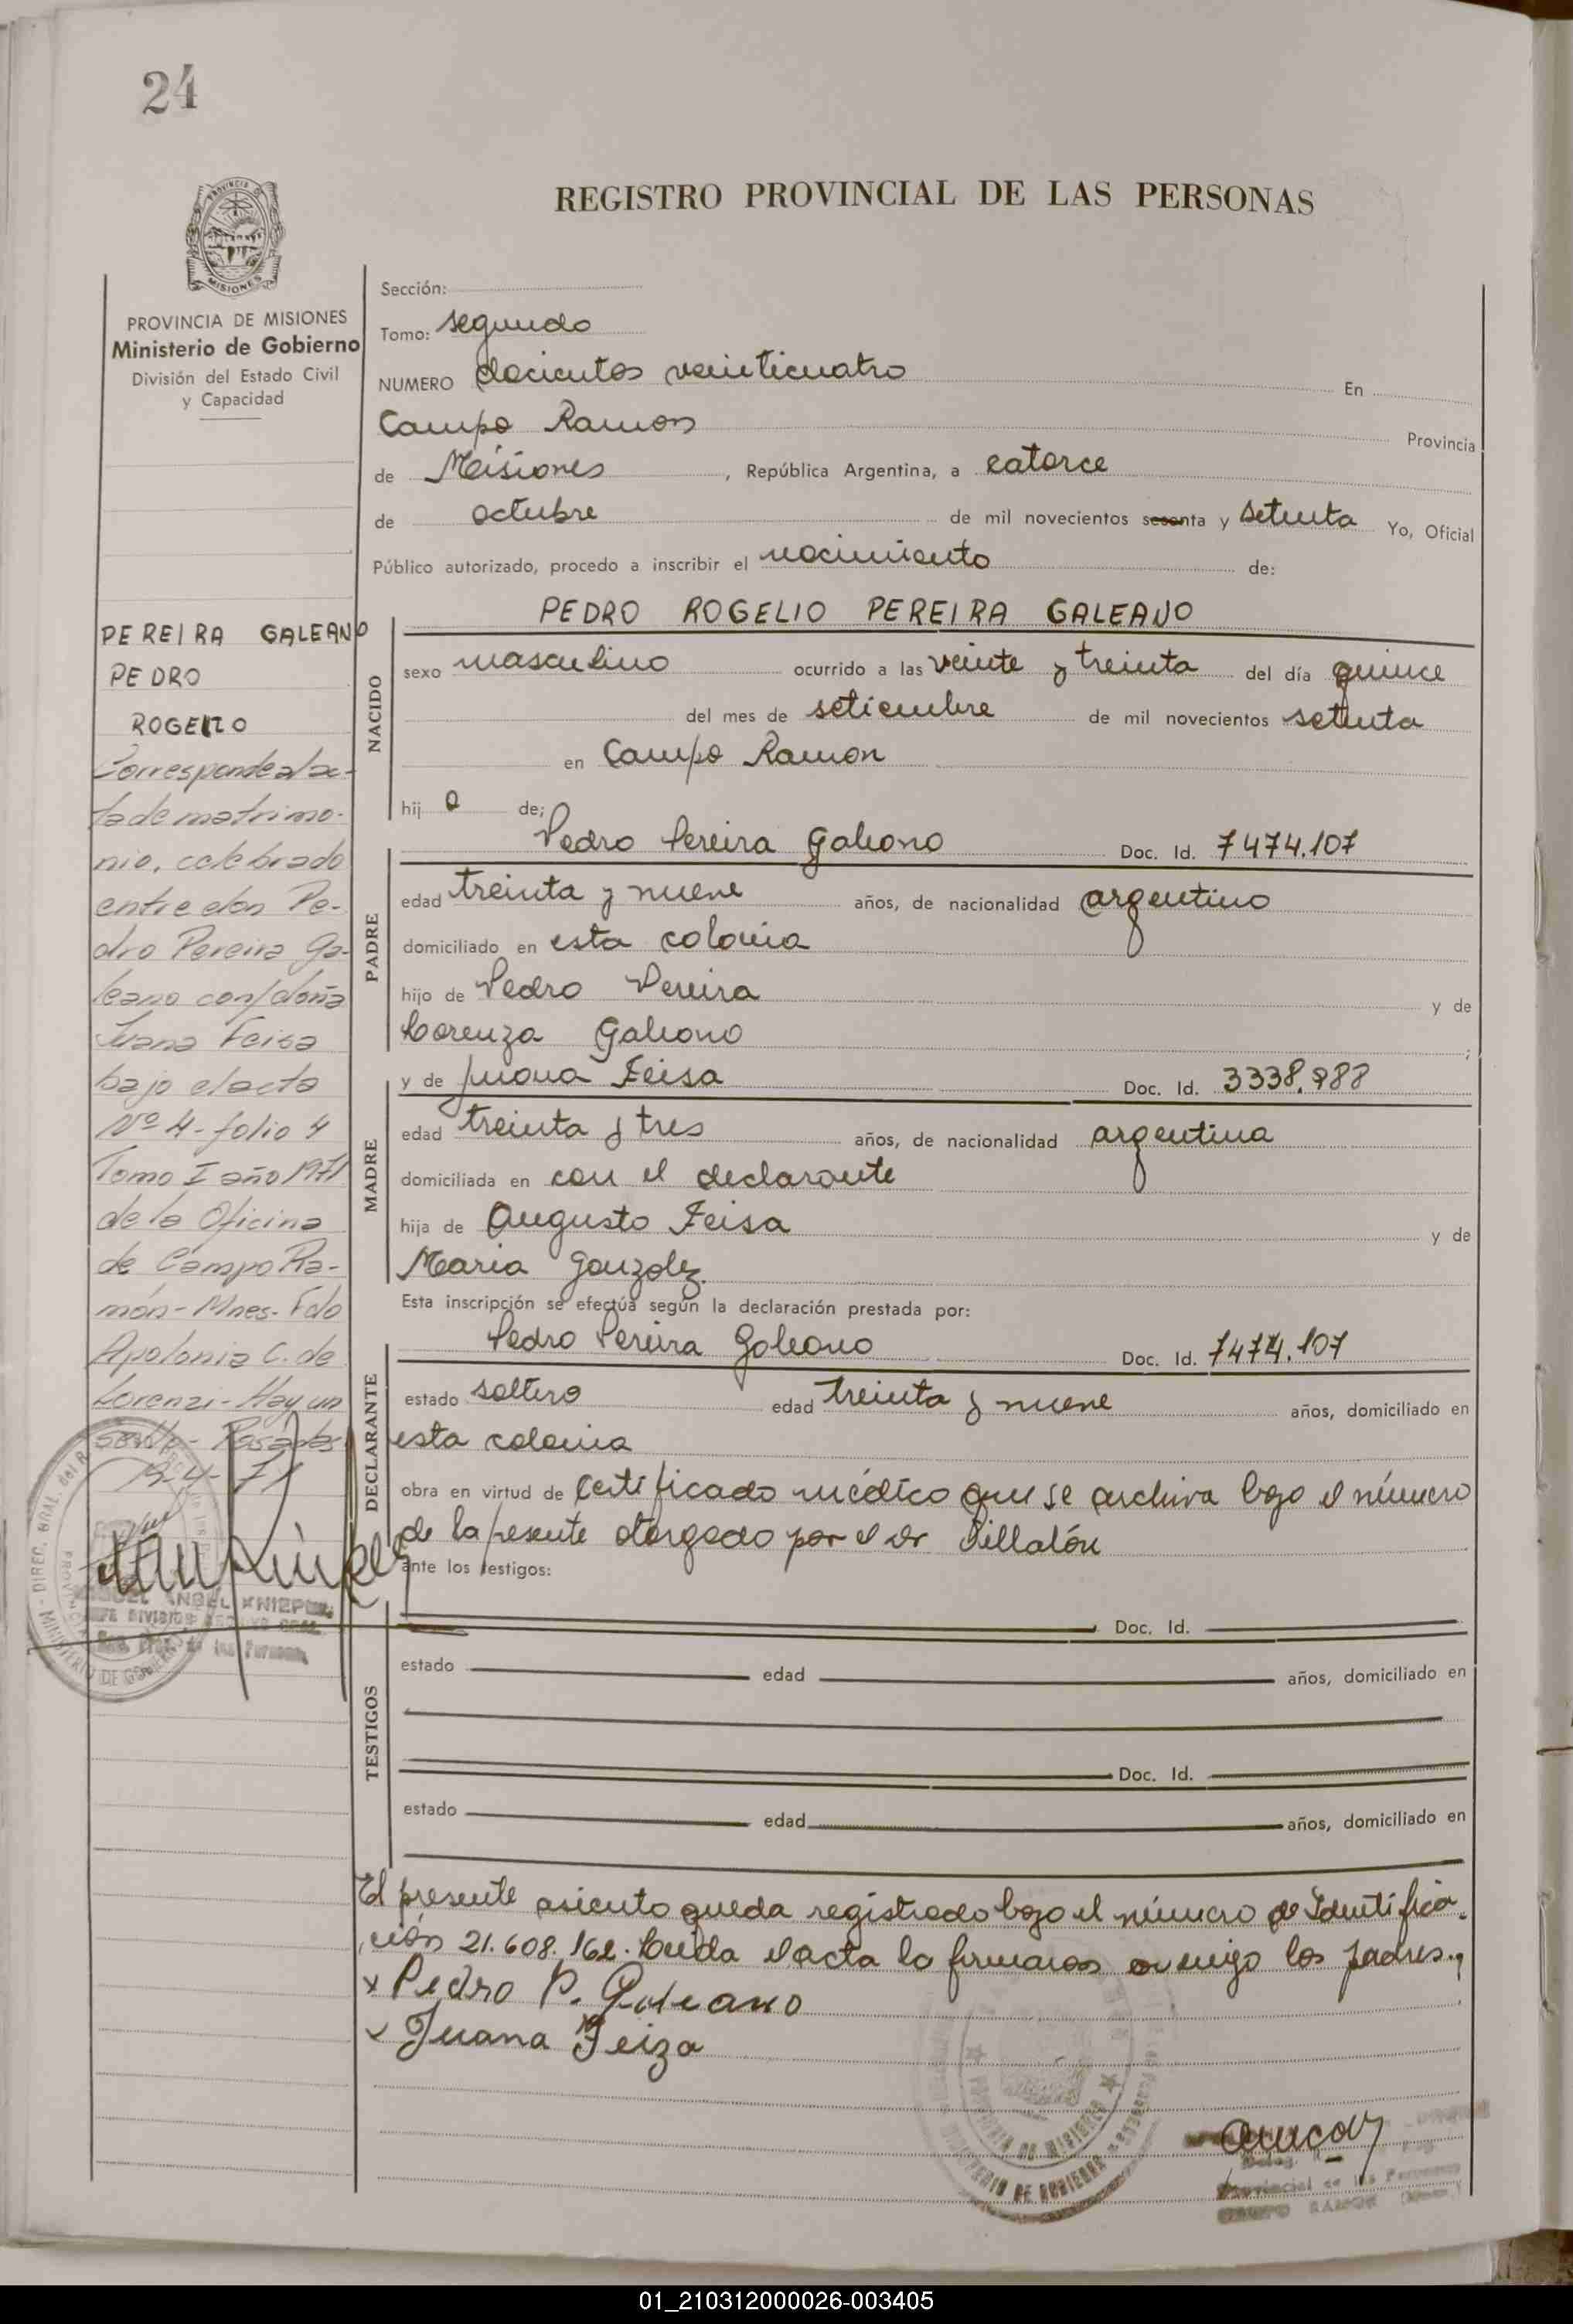 24
REGISTRO PROVINCIAL DE LAS PERSONAS
PROVINCIA DE MISIONES
Ministerio de Gobierno
División del Estado Civil
y Capacidad
Sección:
Tomo: segundo
NUMERO docientos veinticuatro En
Campo Ramon Provincia
de Misiones, República Argentina, a catorce
de octubre de mil novecientos sesenta y setenta Yo, Oficial
Público autorizado, procedo a inscribir el nacimiento de:
PEREIRA GALEANO
PEDRO
ROGELIO
Corresponde al ac-
ta de matrimo-
nio, celebrado
entre don Pe-
dro Pereira Ga-
leano con doña
Juana Feisa
bajo el acta
Nº 4 - folio 4
Tomo I año 1971
de la Oficina
de Campo Ra-
món - Mnes. Fdo
Apolonia C. de
Lorenzi - Hay un
sello - Posadas
19-4-71
NACIDO
PEDRO ROGELIO PEREIRA GALEANO
sexo masculino ocurrido a las veinte y treinta del día quince
del mes de setiembre de mil novecientos setenta
en Campo Ramon
hij o de;
PADRE
Pedro Pereira Galeano Doc. Id. 7474.107
edad treinta y nueve años, de nacionalidad argentino
domiciliado en esta colonia
hijo de Pedro Pereira y de
Lorenza Galeano;
MADRE
y de Juana Feisa Doc. Id. 3338.988
edad treinta y tres años, de nacionalidad argentina
domiciliada en con el declarante
hija de Augusto Feisa y de
Maria Gonzolez.
Esta inscripción se efectúa según la declaración prestada por:
DECLARANTE
Pedro Pereira Galeano Doc. Id. 7474.107
estado soltero edad treinta y nueve años, domiciliado en
esta colonia
obra en virtud de certificado médico que se archiva bajo el número
de la presente otorgado por el Dr Villalón
ante los testigos:
TESTIGOS
Doc. Id.
estado edad años, domiciliado en
Doc. Id.
estado edad años, domiciliado en
El presente asiento queda registrado bajo el número de Identifica-
ción 21.608.162. Leida el acta la firmaron conmigo los padres.,
x Pedro P. Galeano
x Juana Feiza
PROVINCIA DE MISIONES
MINISTERIO DE GOBIERNO
Provincial de las Personas
CAMPO RAMON
01_210312000026-003405